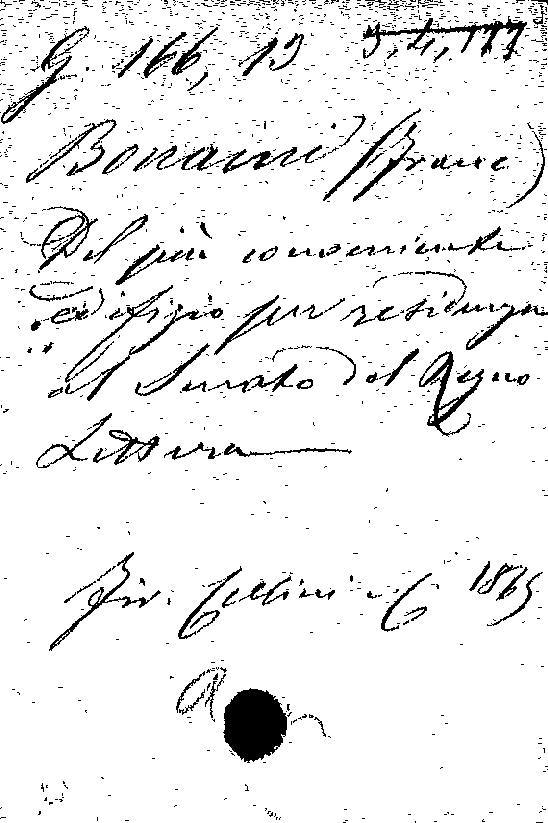 G. 166, 13 3, 4, 177
Bonaini (Franc)
Del più conveniente
edifizio per residenza
al Senato del Regno
Lettera
Fir. Cellini e C. 1865